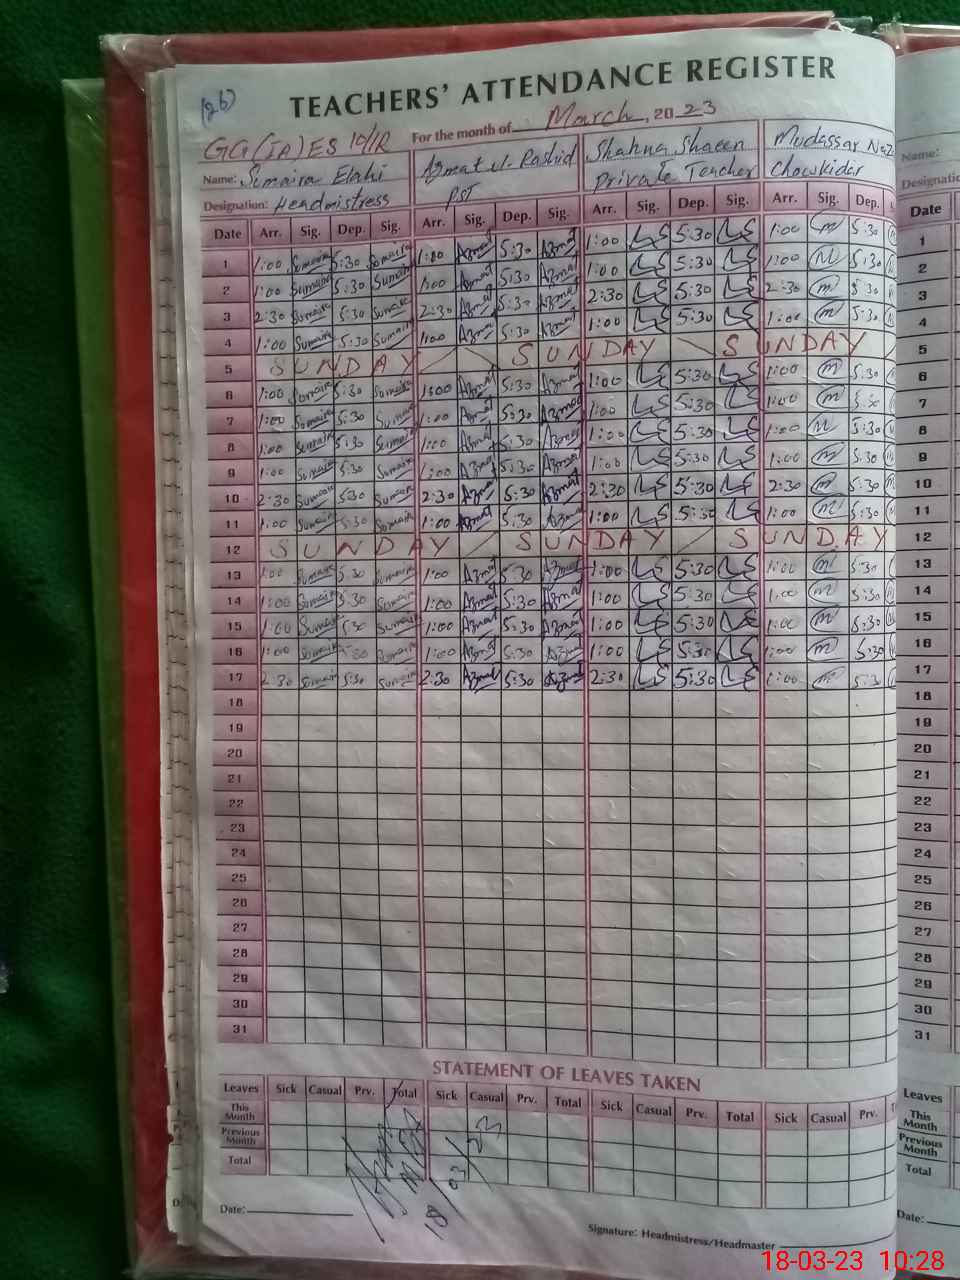 (26)
TEACHERS' ATTENDANCE REGISTER
For the month of March, 2023
GG(IA)ES 10/1R
Name: Sumaira Elahi Azmat ul-Rashid Shahna Shaeen Mudassar
Designation: Headmistress PST Private Teacher Chowkidar
Date Arr. Sig. Dep. Sig. Arr. Sig. Dep. Sig. Arr. Sig. Dep. Sig. Arr. Sig. Dep.
1 1:00 Sumaira 5:30 Sumaira 1:00 Azmat 5:30 Azmat 1:00 5:30 1:00 m 5:30
2 1:00 Sumaira 5:30 Sumaira 1:00 Azmat 5:30 Azmat 1:00 5:30 1:00 M 5:30
3 2:30 Sumaira 5:30 Sumaira 2:30 Azmat 5:30 Azmat 2:30 5:30 2:30 m 5:30
4 1:00 Sumaira 5:30 Sumaira 1:00 Azmat 5:30 Azmat 1:00 5:30 1:00 m 5:30
5 SUNDAY SUNDAY SUNDAY
6 1:00 Sumaira 5:30 Sumaira 1:00 Azmat 5:30 Azmat 1:00 5:30 1:00 m 5:30
7 1:00 Sumaira 5:30 Sumaira 1:00 Azmat 5:30 Azmat 1:00 5:30 1:00 m 5:30
8 1:00 Sumaira 5:30 Sumaira 1:00 Azmat 5:30 Azmat 1:00 5:30 1:00 M 5:30
9 1:00 Sumaira 5:30 Sumaira 1:00 Azmat 5:30 Azmat 1:00 5:30 1:00 m 5:30
10 2:30 Sumaira 5:30 Sumaira 2:30 Azmat 5:30 Azmat 2:30 5:30 2:30 m 5:30
11 1:00 Sumaira 5:30 Sumaira 1:00 Azmat 5:30 Azmat 1:00 5:30 1:00 m 5:30
12 SUNDAY SUNDAY SUNDAY
13 1:00 Sumaira 5:30 Sumaira 1:00 Azmat 5:30 Azmat 1:00 5:30 1:00 m 5:30
14 1:00 Sumaira 5:30 Sumaira 1:00 Azmat 5:30 Azmat 1:00 5:30 1:00 m 5:30
15 1:00 Sumaira 5:30 Sumaira 1:00 Azmat 5:30 Azmat 1:00 5:30 1:00 m 5:30
16 1:00 Sumaira 5:30 Sumaira 1:00 Azmat 5:30 Azmat 1:00 5:30 1:00 m 5:30
17 2:30 Sumaira 5:30 Sumaira 2:30 Azmat 5:30 Azmat 2:30 5:30 1:00 m 5:30
18
19
20
21
22
23
24
25
26
27
28
29
30
31
STATEMENT OF LEAVES TAKEN
Leaves Sick Casual Prv. Total Sick Casual Prv. Total Sick Casual Prv. Total Sick Casual Prv.
This Month
Previous Month
Total
18/03/23
Date:
Signature: Headmistress/Headmaster
Name:
Designatio
Date
1
2
3
4
5
6
7
8
9
10
11
12
13
14
15
16
17
18
19
20
21
22
23
24
25
26
27
28
29
30
31
Leaves
This Month
Previous Month
Total
Date:
18-03-23 10:28